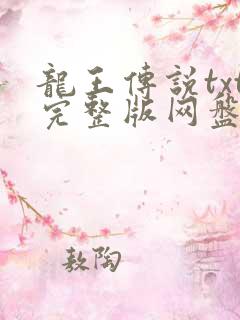 龍王傳説txt
完整版网盤
敖陶